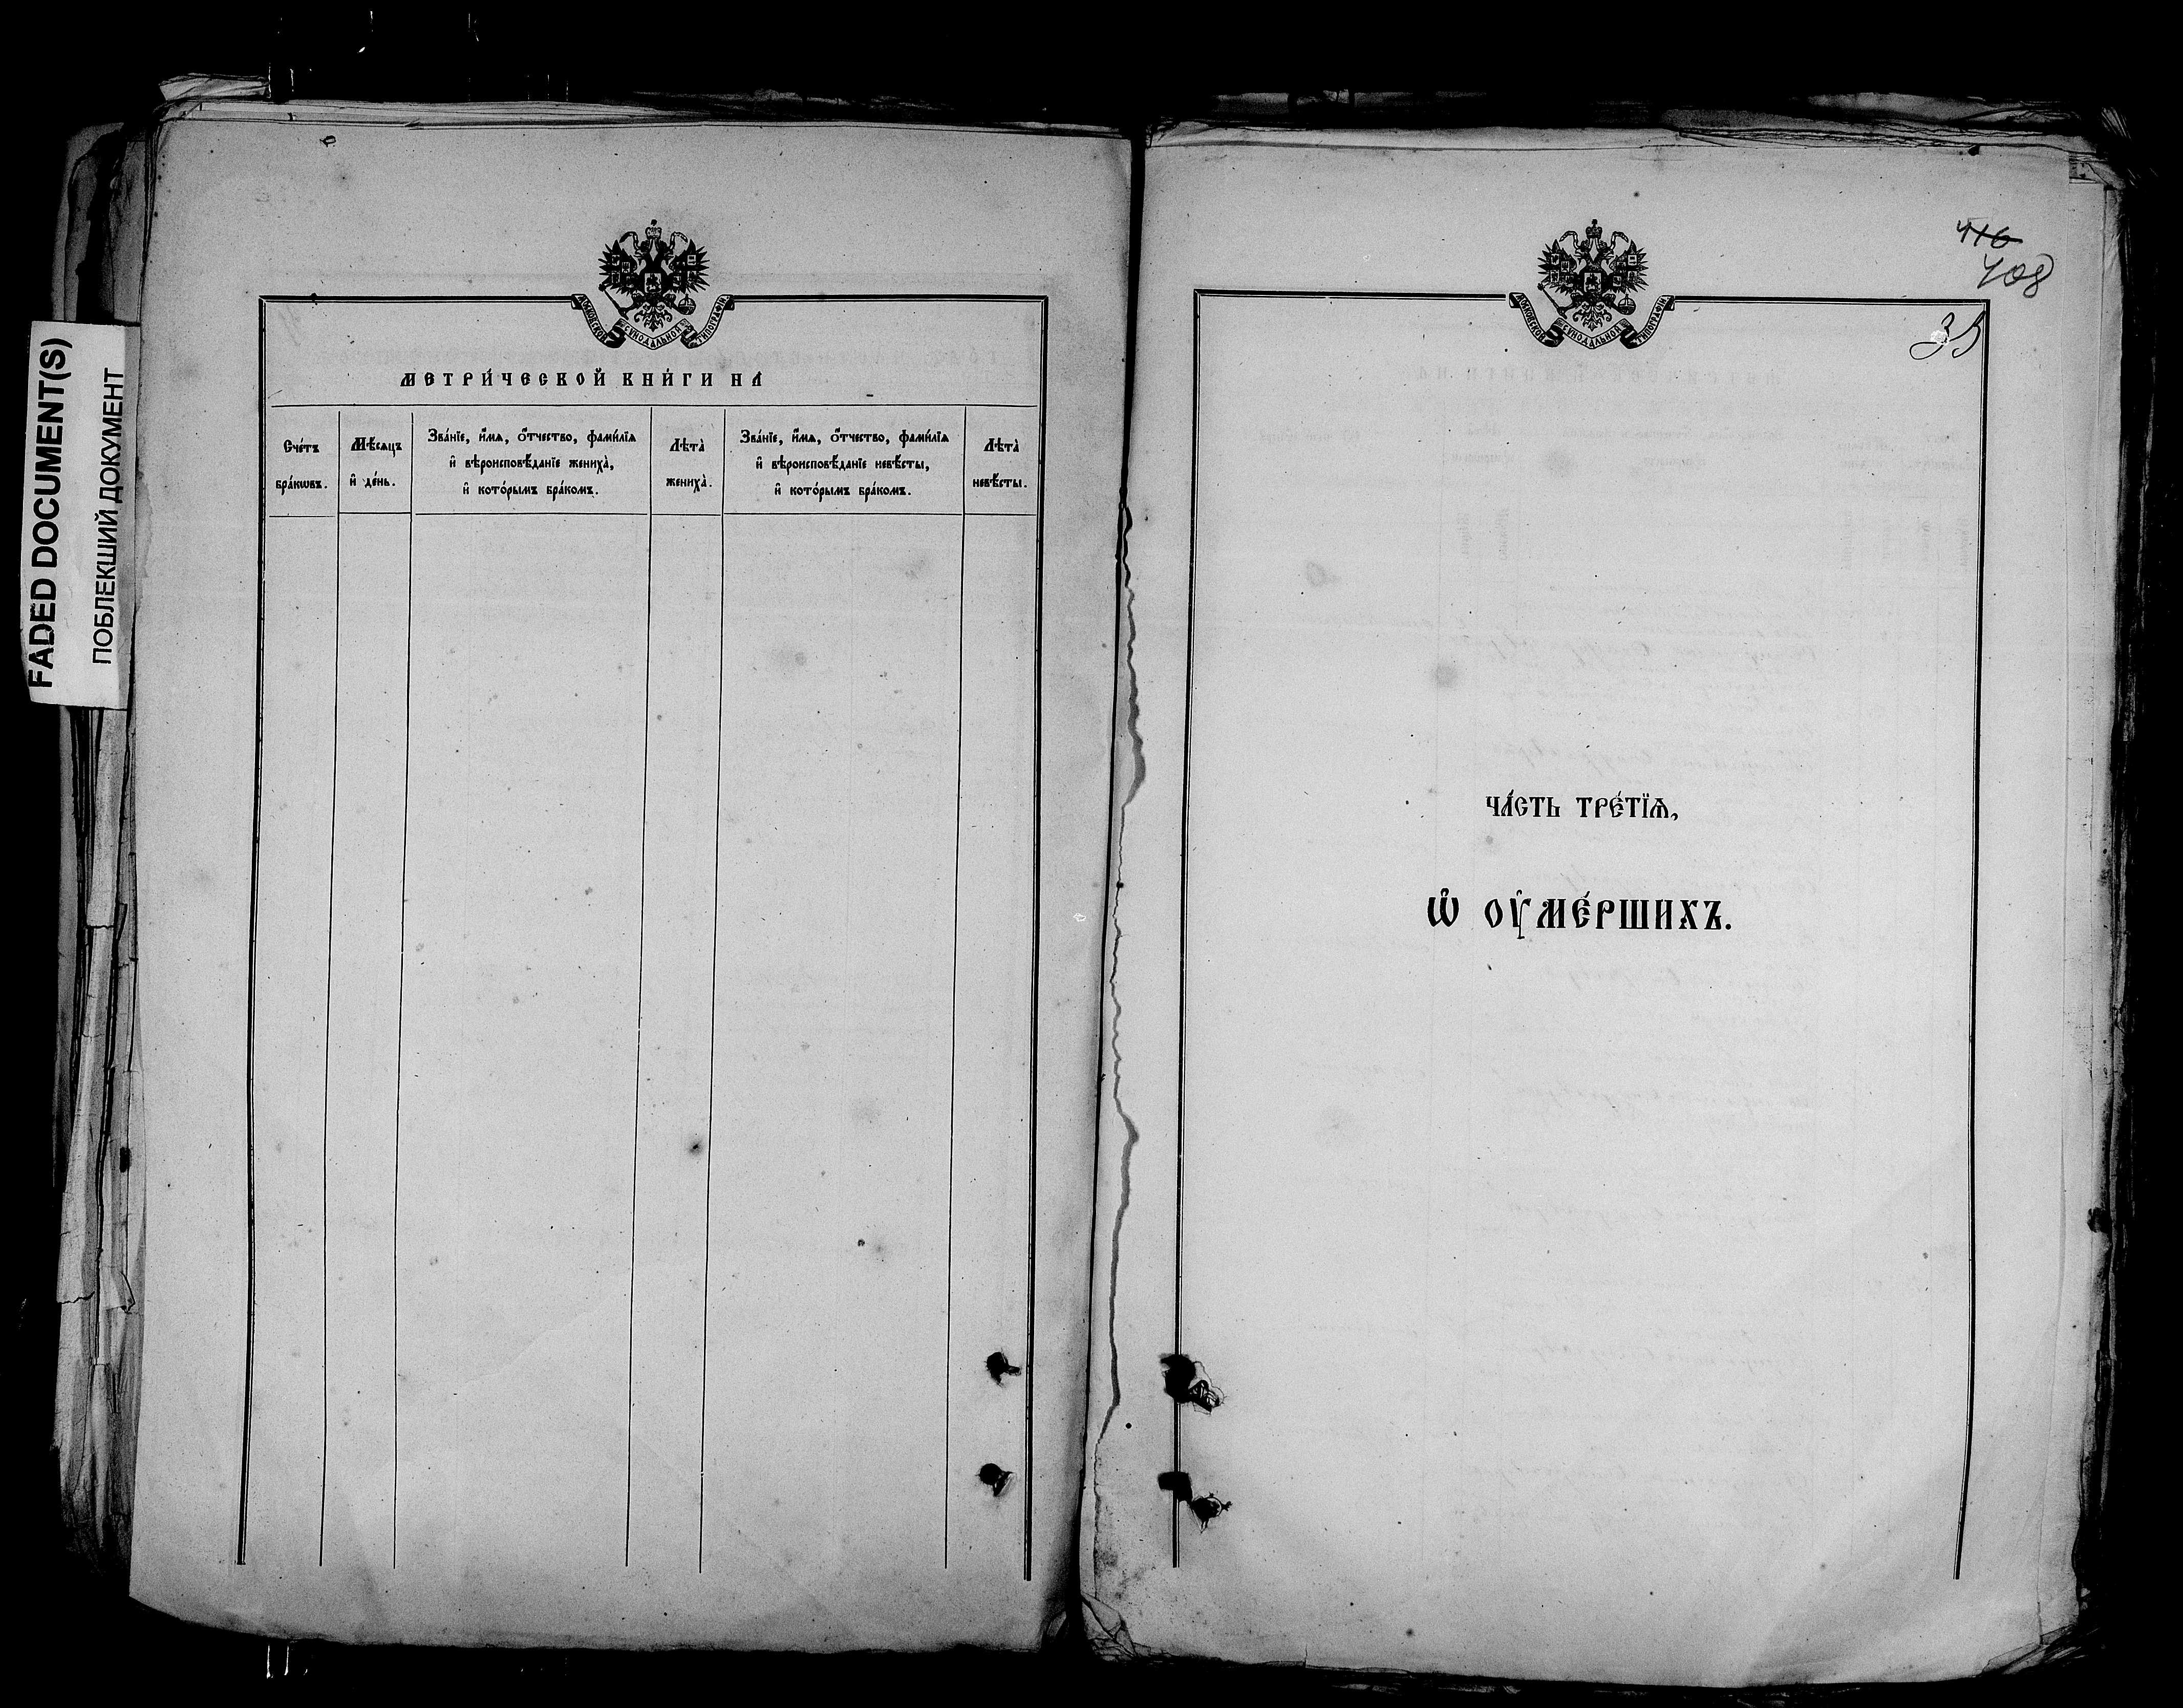 FADED DOCUMENT(S)
ПОБЛЕКШИЙ ДОКУМЕНТ
МОСКОВСКОЙ СѴНОДАЛЬНОЙ ТИПОГРАФІИ
МЕТРИ́ЧЕСКОЙ КНИ́ГИ НА̀
Сче́тъ
бра́кѡвъ.
Мѣ́сѧцъ
и҆ де́нь.
Зва́нїе, и҆́мѧ, ѻ҆́тчество, фами́лїѧ
и҆ вѣроисповѣ́данїе жениха̀,
и҆ кото́рымъ бра́комъ.
Лѣта̀
жениха̀.
Зва́нїе, и҆́мѧ, ѻ҆́тчество, фами́лїѧ
и҆ вѣроисповѣ́данїе невѣ́сты,
и҆ кото́рымъ бра́комъ.
Лѣта̀
невѣ́сты.
416
408
МОСКОВСКОЙ СѴНОДАЛЬНОЙ ТИПОГРАФІИ
ЧА́СТЬ ТРЕ́ТЇѦ,
Ѡ҆ ОУ҆МЕ́РШИХЪ.